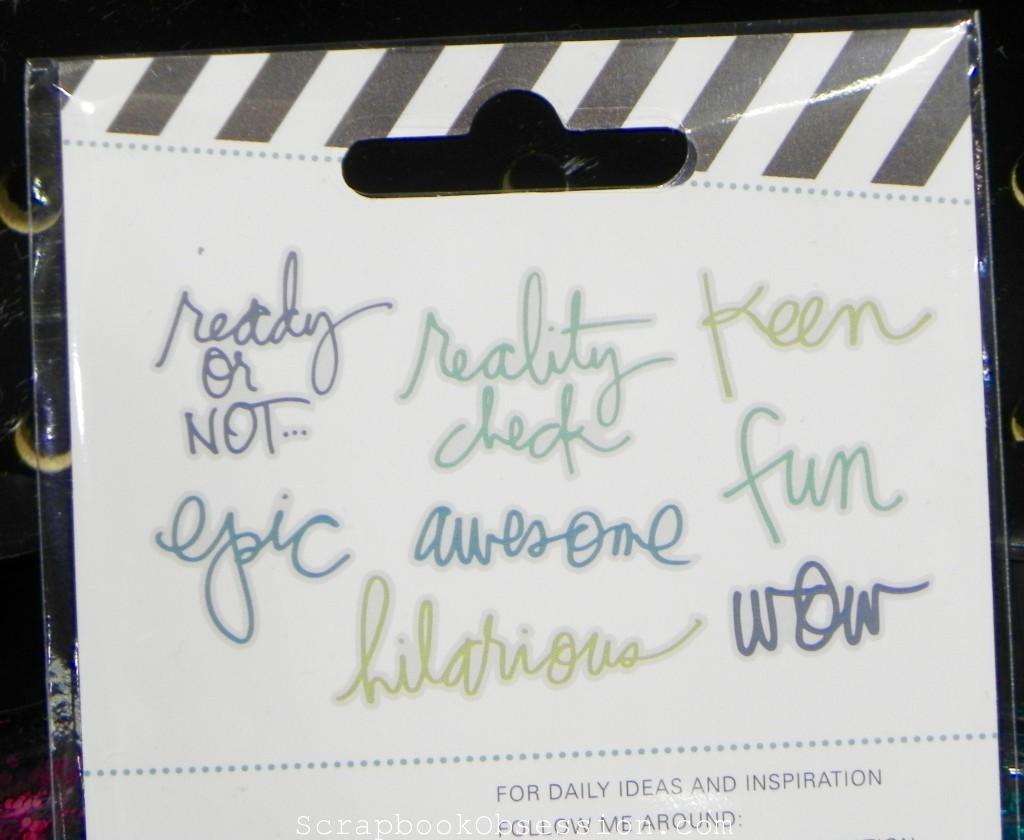 ready
or
NOT...
reality
check
keen
fun
epic
awesome
hilarious
wow
FOR DAILY IDEAS AND INSPIRATION
FOLLOW ME AROUND:
ScrapbookObsession.com